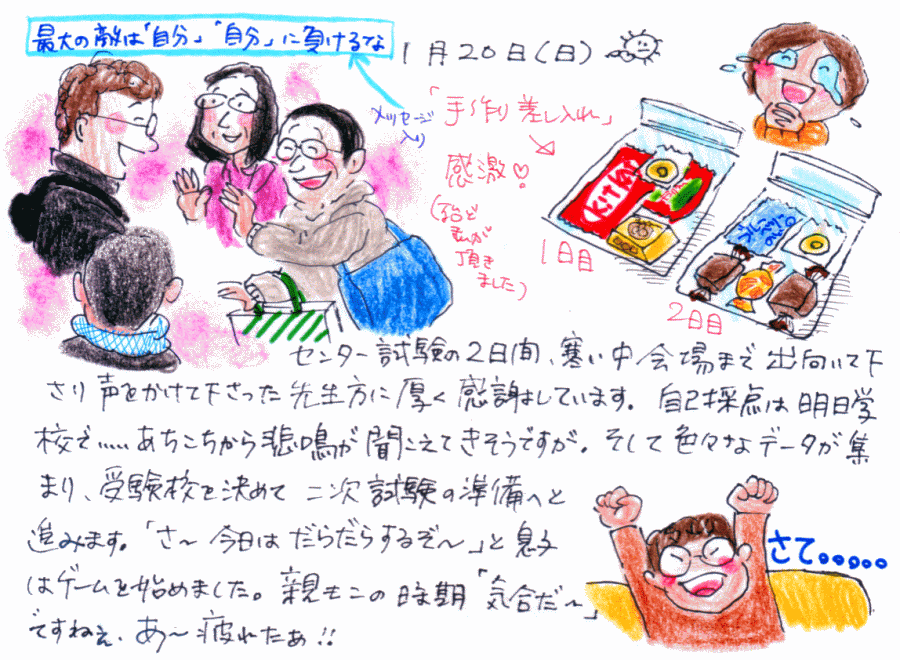 最大の敵は「自分」「自分」に負けるな
1月20日(日)
メッセージ
入り
「手作り差し入れ」
感激♡
(殆ど
私が
頂き
ました)
KitKat
1日目
2日目
センター試験の2日間、寒い中会場まで出向いて下
さり声をかけて下さった先生方に厚く感謝しています。自己採点は明日学
校で……あちこちから悲鳴が聞こえてきそうですが。そして色々なデータが集
まり、受験校を決めて二次試験の準備へと
進みます。「さ〜今日はだらだらするぞ〜」と息子
はゲームを始めました。親もこの時期「気合だ〜」
ですねぇ、あ〜疲れたぁ!!
さて。。。。。